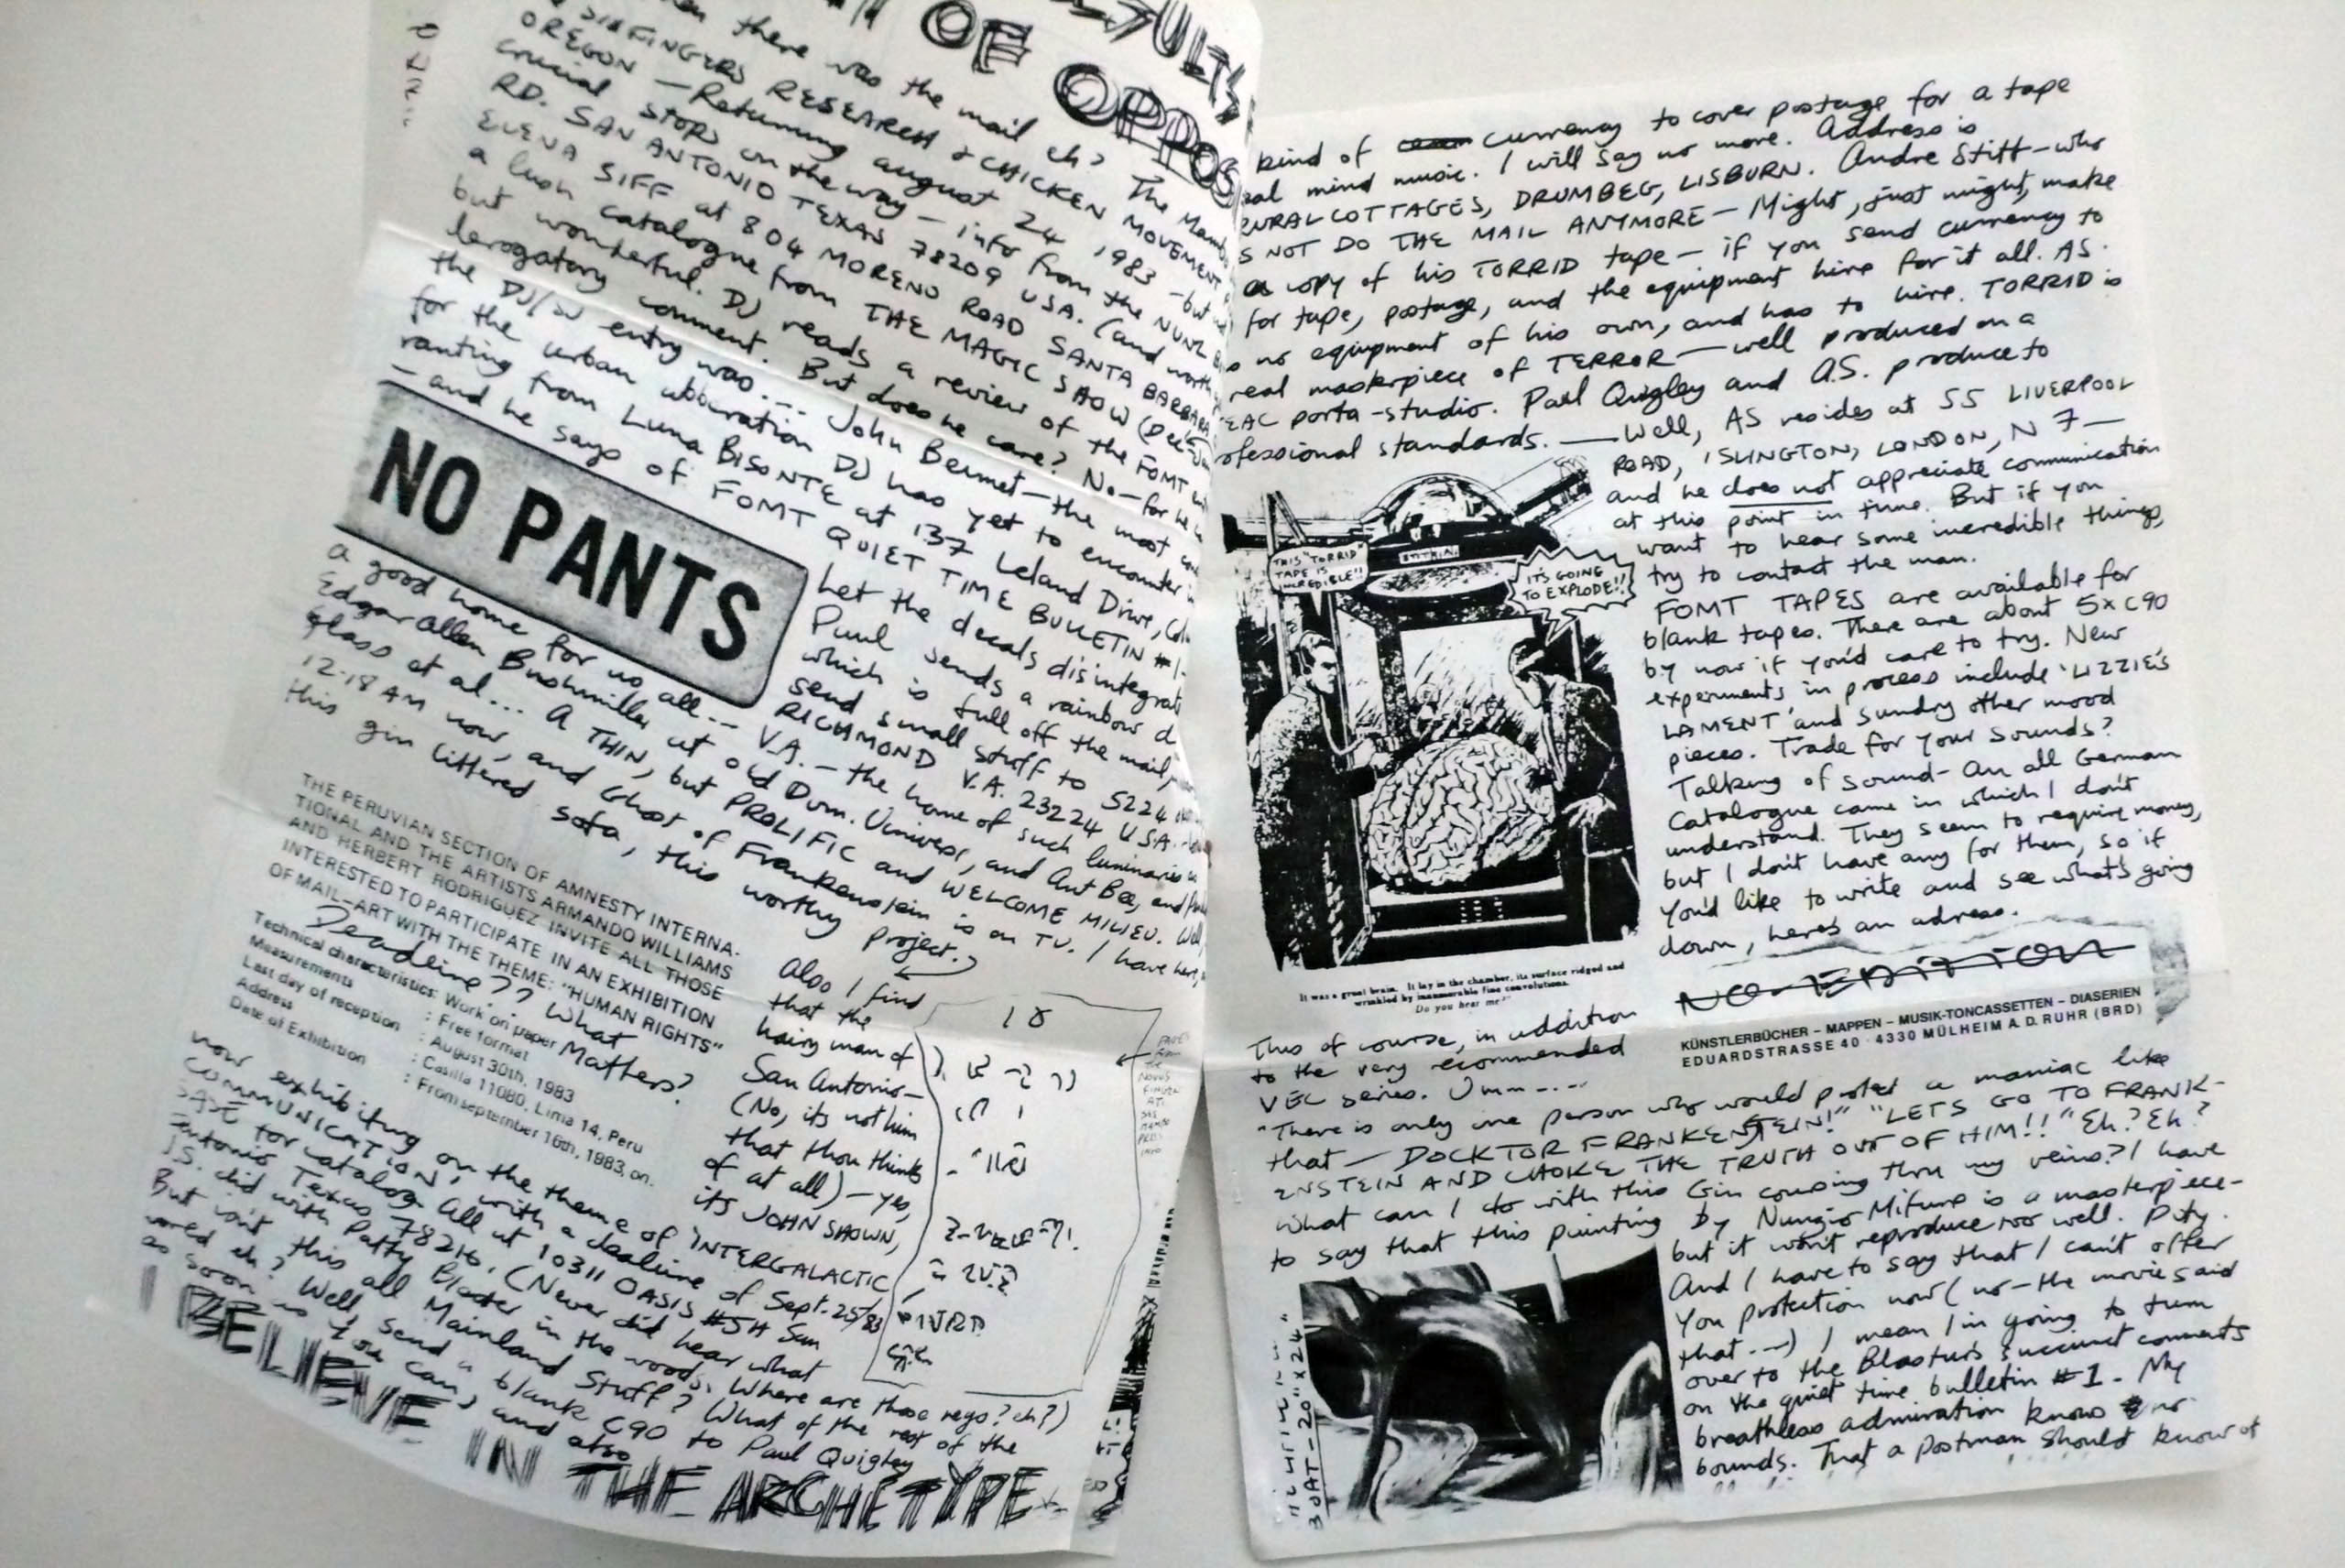 OF OPPOS
there was the mail eh? The
SIXFINGERS RESEARCH & CHICKEN MOVEMENT
OREGON — Returning august 24 1983 - but
crucial stops on the way — info from the
RD. SAN ANTONIO TEXAS 78209 USA. (and worth
ELENA SIFF at 804 MORENO ROAD SANTA BARBARA
a lush catalogue from THE MAGIC SHOW
but wonderful. DJ reads a review of the FOMT
derogatory comment. But does he care? No — for he
the DJ/ entry was... John Bennet — the most
for the urban abberation DJ has yet to encounter
ranting from Luna BISONTE at 137 Leland Drive,
— and he says of FOMT QUIET TIME BULLETIN #1-
NO PANTS
Let the decals disintegrate
Paul sends a rainbow
which is full off the mail,
send small stuff to 5224
RICHMOND V.A. 23224 USA.
a good home for us all... V.A. — the home of such luminaries
Edgar Allen Bushmiller at old Dom. Univers, and Ant Bee, and
Glass et al... A THIN, but PROLIFIC and WELCOME MILIEU. Well
12.18 AM now, and Ghost of Frankenstein is on TV. I have here,
this gin littered sofa, this worthy project.
THE PERUVIAN SECTION OF AMNESTY INTERNA-
TIONAL AND THE ARTISTS ARMANDO WILLIAMS
AND HERBERT RODRIGUEZ INVITE ALL THOSE
INTERESTED TO PARTICIPATE IN AN EXHIBITION
OF MAIL-ART WITH THE THEME: "HUMAN RIGHTS"
Deadline?? What Matters?
Technical characteristics: Work on paper
Measurements : Free format
Last day of reception : August 30th, 1983
Address : Casilla 11080, Lima 14, Peru
Date of Exhibition : From september 16th, 1983, on.
Also I find
that the
hairy man of
San Antonio —
(No, its not him
that thou thinks
of at all) — yes,
its JOHN SHOWN,
now exhibiting on the theme of 'INTERGALACTIC
COMMUNICATION', with a deadline of Sept. 25/83
SASE for catalog. All at 10311 OASIS #5H San
Antonio Texas 78216. (Never did hear what
J.S. did with Patty Blaster in the woods. Where are those negs? eh?)
But isn't this all Mainland Stuff? What of the rest of the
world eh? Well, send a blank C90 to Paul Quigley
as soon as you can, and also
I BELIEVE IN THE ARCHETYPE
kind of currency to cover postage for a tape
mind music. I will say no more. Address is
RURAL COTTAGES, DRUMBEG, LISBURN. Andre Stitt — who
NOT DO THE MAIL ANYMORE — Might, just might, make
a copy of his TORRID tape — if you send currency to
for tape, postage, and the equipment hire for it all. AS.
no equipment of his own, and has to hire. TORRID is
real masterpiece of TERROR — well produced on a
porta-studio. Paul Quigley and A.S. produce to
standards. — Well, AS resides at 55 LIVERPOOL
ROAD, ISLINGTON, LONDON, N7 —
and he does not appreciate communication
at this point in time. But if you
want to hear some incredible things,
try to contact the man.
THIS "TORRID"
TAPE IS
INCREDIBLE!!
IT'S GOING
TO EXPLODE!!
FOMT TAPES are available for
blank tapes. There are about 5x C90
by now if you'd care to try. New
experiments in process include 'LIZZIE'S
LAMENT' and sundry other mood
pieces. Trade for your sounds?
Talking of sound - An all German
catalogue came in which I don't
understand. They seem to require money,
but I don't have any for them, so if
you'd like to write and see what's going
down, here's an adress.
It was a great brain. It lay in the chamber, its surface ridged and
wrinkled by innumerable fine convolutions.
"Do you hear me?"
NO-EDITION
KÜNSTLERBÜCHER – MAPPEN – MUSIK-TONCASSETTEN – DIASERIEN
EDUARDSTRASSE 40 · 4330 MÜLHEIM A. D. RUHR (BRD)
This of course, in addition
to the very recommended
VEC series. Umm.....
"There is only one person who would protect a maniac like
that — DOCKTOR FRANKENSTEIN!" "LETS GO TO FRANK-
ENSTEIN AND CHOKE THE TRUTH OUT OF HIM!!" Eh? Eh?
What can I do with this Gin coursing thru my veins? I have
to say that this painting by Nunzio Mifune is a masterpiece -
but it won't reproduce too well. Pity.
And I have to say that I can't offer
you protection now (no — the movie said
that...) I mean I'm going to turn
over to the Blasturs succinct comments
on the quiet time bulletin #1. My
breathless admiration knows no
bounds. That a postman should know of
20" x 24"